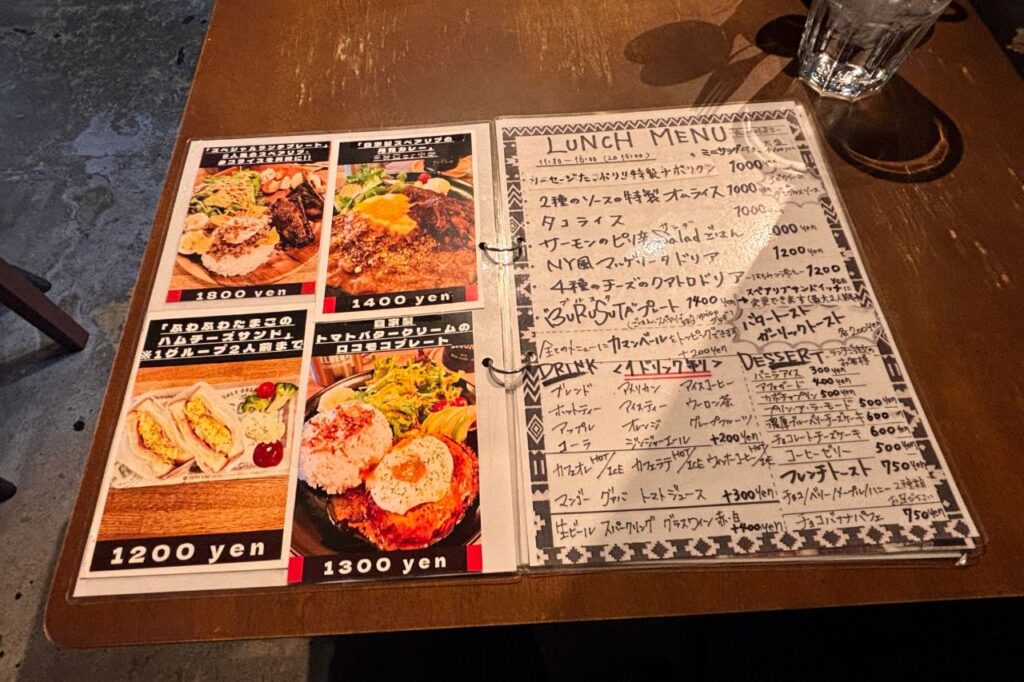 「スペシャルランチプレート」
1800 yen
1400 yen
「ふわふわたまごの
ハムチーズサンド」
※1グループ2人前まで
1200 yen
自家製
トマトバタークリームの
ロコモコプレート
1300 yen
LUNCH MENU
11:30〜16:00 (LO 15:00)
ソーセージたっぷり!!特製ナポリタン 1000 yen
2種のソースの特製オムライス 1000 yen
タコライス 1000
サーモンのピリ辛 Salad ごはん 1000 yen
NY風マッケリータドリア 1200 yen
4種のチーズのクアトロドリア 1200
BURUSUTAプレート 1400 yen
スペアリブサンドイッチ
バタートースト
ガーリックトースト
全てのメニューにカマンベールをトッピングできます
+200 yen
DRINK <1ドリンク制>
ブレンド アメリカン アイスコーヒー
ホットティー アイスティー ウーロン茶
アップル オレンジ グレープフルーツ
コーラ ジンジャーエール +200 yen
カフェオレ HOT/ICE カフェラテ HOT/ICE
マンゴー グァバ トマトジュース +300 yen
生ビール スパークリング グラスワイン赤・白 +400 yen
DESSERT
バニラアイス 300 yen
アフォガード 400 yen
カボチャプリン 500 yen
プリン・ア・ラ・モード 500 yen
濃厚ブルーベリーチーズケーキ 600 yen
チョコレートチーズケーキ 600 yen
コーヒーゼリー 500 yen
フレンチトースト 750 yen
チョコ/ベリー/メープル/ハニー
チョコバナナパフェ 750 yen